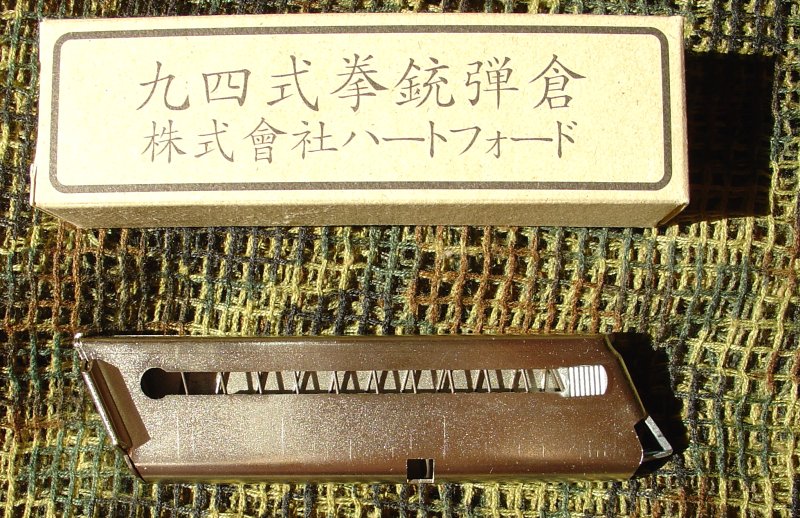 九四式拳銃弾倉
株式會社ハートフォード